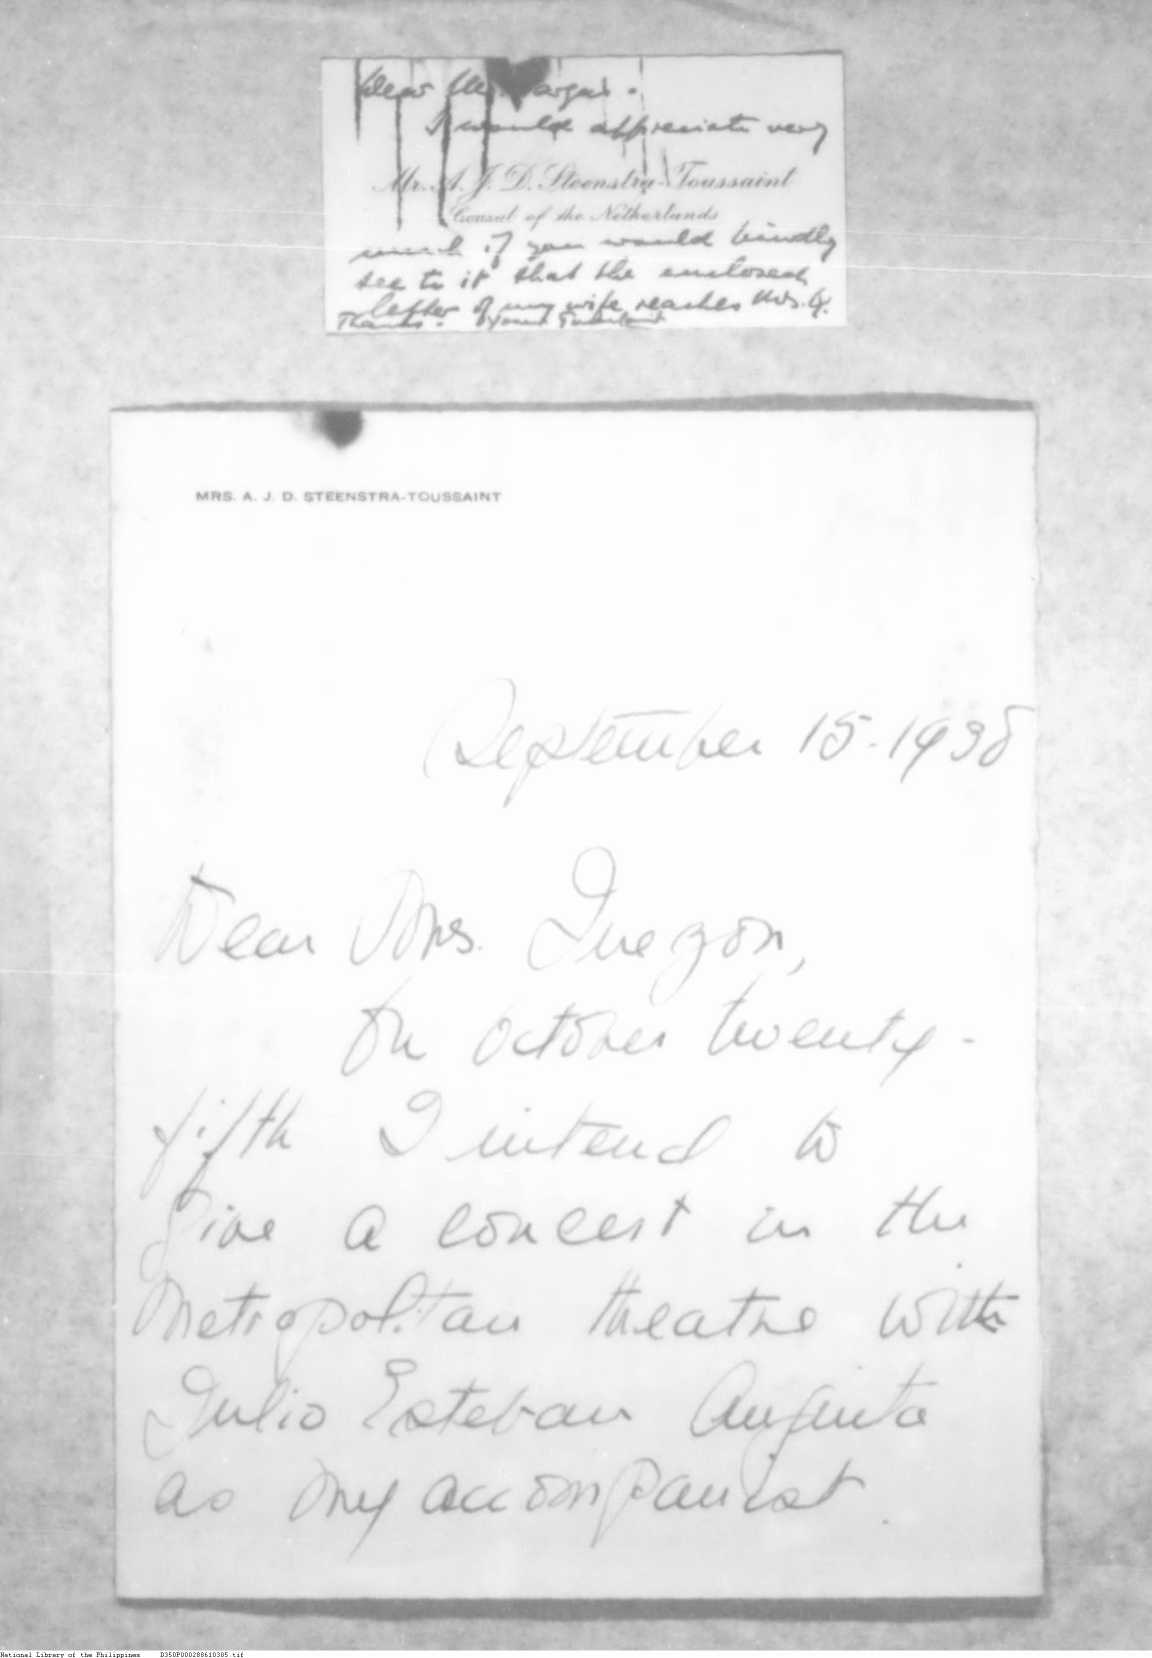 Dear Mr. Vargas.
I would appreciate very
Mr. A. J. D. Steenstra-Toussaint
Consul of the Netherlands
much if you would kindly
see to it that the enclosed
letter of my wife reaches Mrs. Q.
Thanks. Yours
MRS. A. J. D. STEENSTRA-TOUSSAINT
September 15-1938
Dear Mrs. Quezon,
On october twenty-
fifth I intend to
give a concert in the
Metropolitan theatre with
Julio Esteban Anguita
as my accompanist.
National Library of the Philippines D350P000288610305.tif